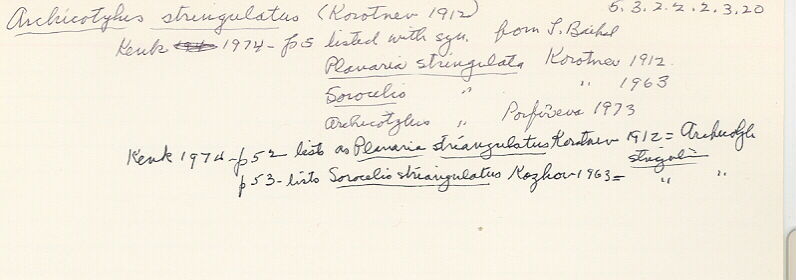 Archicotylus stringulatus (Korotnev 1912) 5.3.2.2.2.3.20
Kenk 1974 - p5 listed with syn. from L. Baikal
Planaria stringulata Korotnev 1912.
Sorocelis " " 1963
Archicotylus " Porfireva 1973
Kenk 1974 - p52 lists as Planaria striangulatus Korotnev 1912 = Archicotyl
stringula
p53 - lists Sorocelis striangulatus Kozhov 1963 = " "